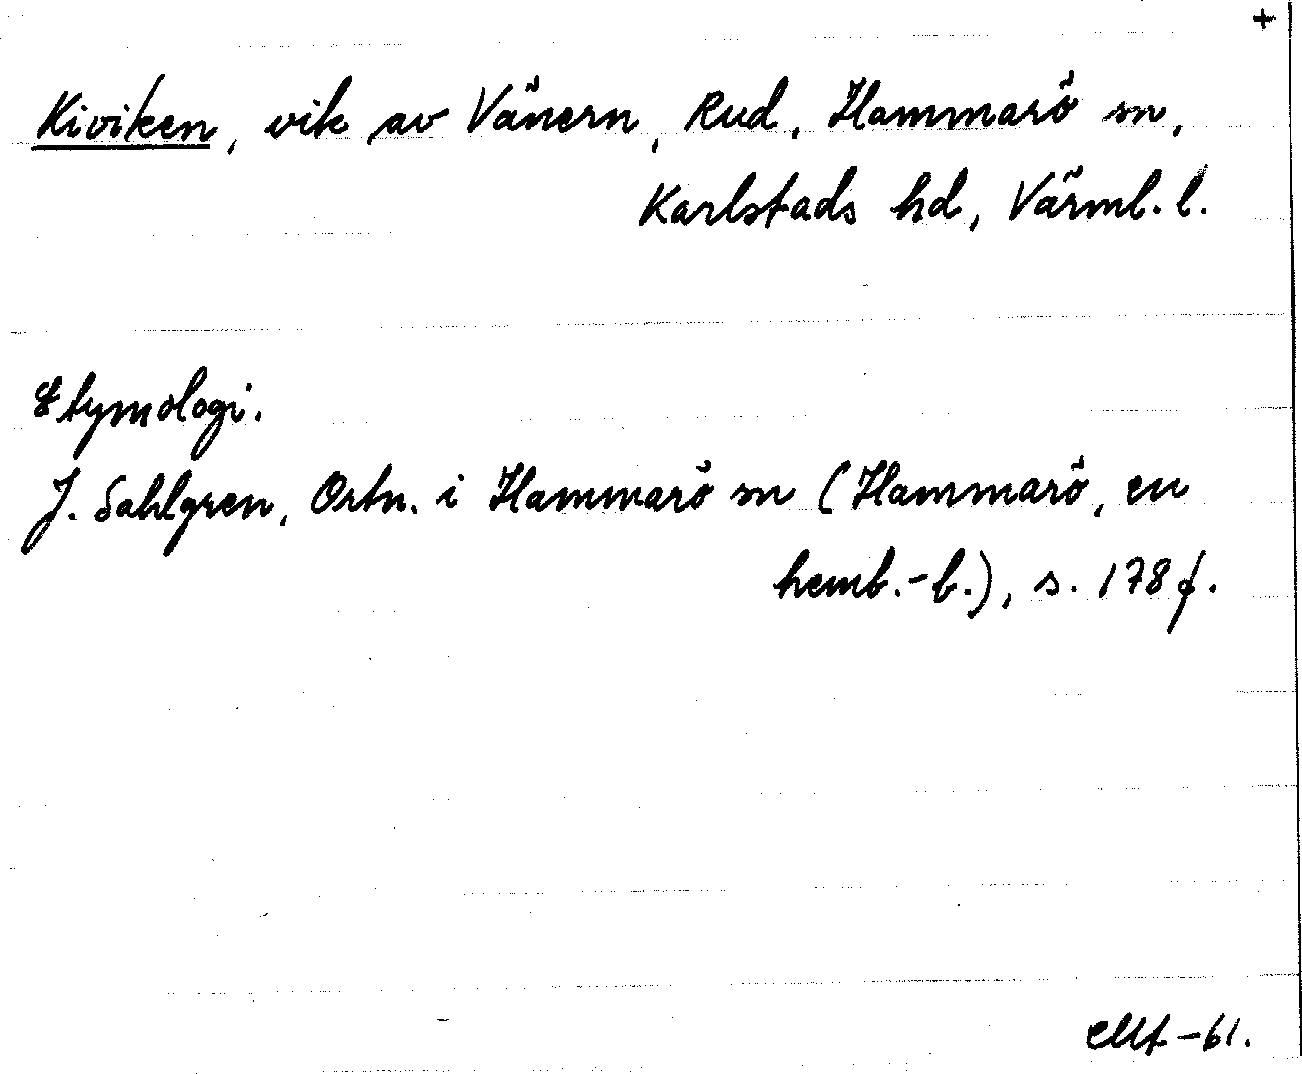 +
Kiviken, vik av Vänern, Rud, Hammarö sn,
Karlstads hd, Värml. l.
Etymologi.
J. Sahlgren, Ortn. i Hammarö sn (Hammarö, en
hemb.-b.), s. 178 f.
-61.